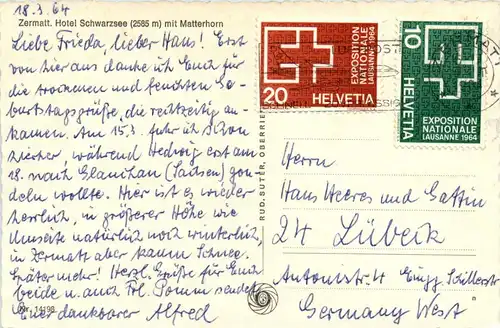 18.3.64
Zermatt. Hotel Schwarzsee (2585 m) mit Matterhorn
Liebe Frieda, lieber Hans! Erst
von hier aus danke ich Euch für
die trockenen und feuchten Ge-
burtstagsgrüße, die rechtzeitig an-
kamen. Am 15.3. fuhr ich schon
hierher, während Hedwig erst am
18. nach Glauchau (Sachsen) gon-
deln wollte. Hier ist es wieder
herrlich, in größerer Höhe wie
Umseite natürlich noch winterlich,
in Zermatt aber kaum Schnee.
Später mehr! Herzl. Grüße für Euch
beide u. auch Frl. Pomm sendet
Euer dankbarer Alfred
Nr. 14198
RUD. SUTER, OBERRIE
20
EXPOSITION
NATIONALE
LAUSANNE 1964
HELVETIA
10
EXPOSITION
NATIONALE
LAUSANNE 1964
HELVETIA
Herrn
Hans Heeres und Gattin
24 Lübeck
Antonistr. 4 Eingg. Schillerstr
Germany West